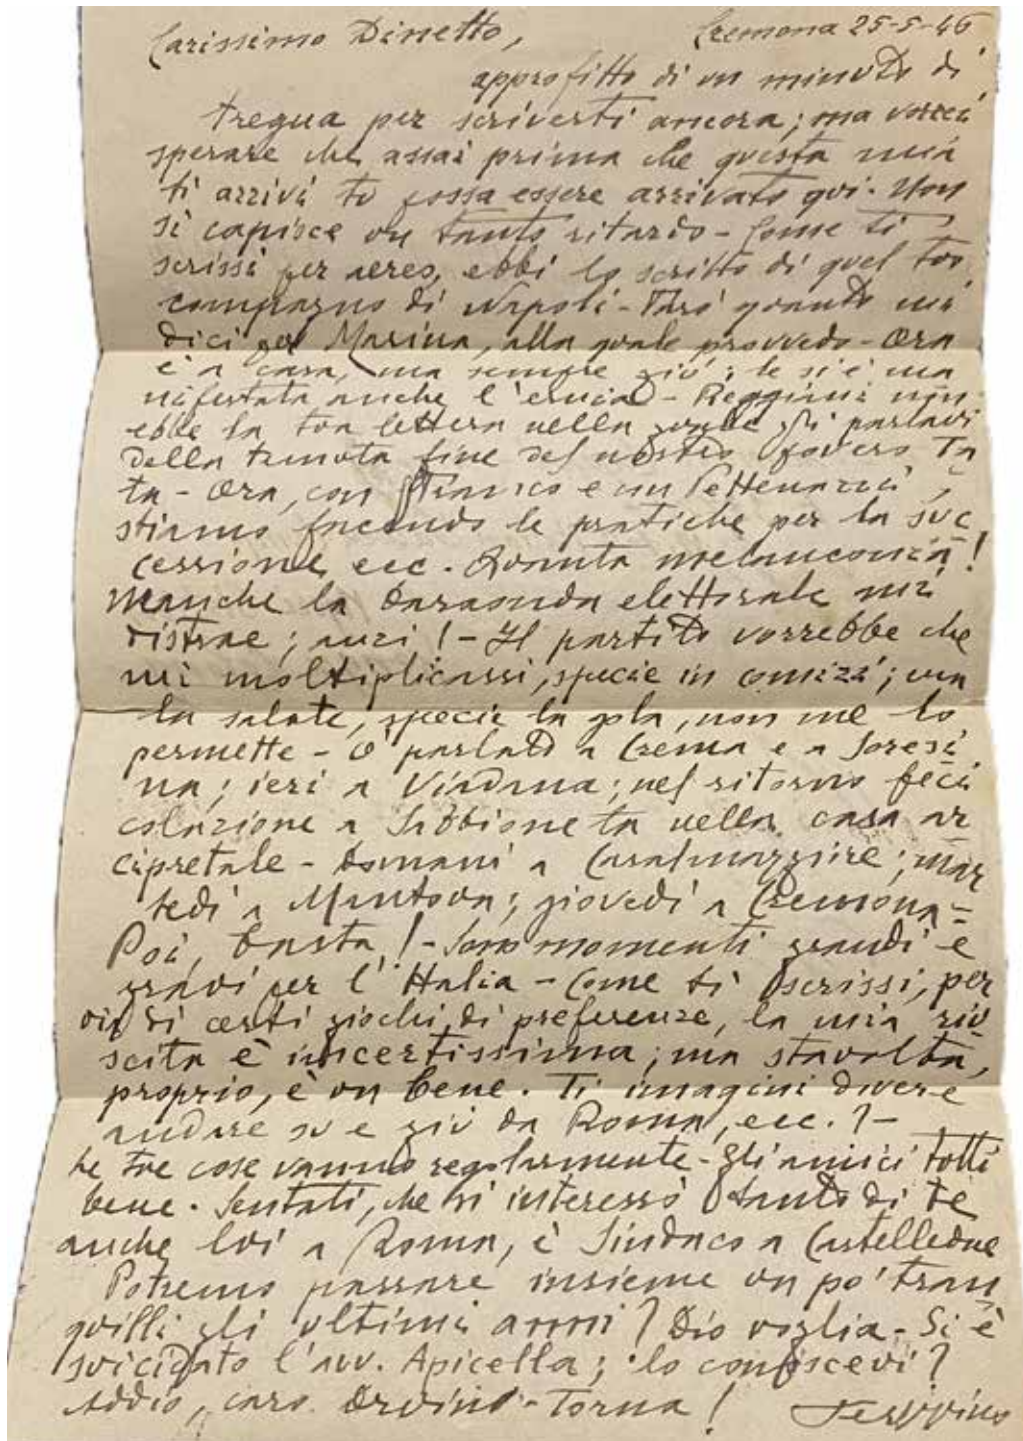 Carissimo Dinetto, Cremona 25-5-46
approfitto di un minuto di
tregua per scriverti ancora; ma vorrei
sperare che assai prima che questa mia
ti arrivi tu possa essere arrivato qui. Non
si capisce un tanto ritardo - Come ti
scrissi per aereo, ebbi lo scritto di quel tuo
compagno di Napoli - Farò quanto mi
dici per Marina, alla quale provvedo - Ora
è a casa, ma sempre giù; le si è ma
nifestata anche l'ernia - Reggiani non
ebbe la tua lettera nella quale gli parlavi
della temuta fine del nostro povero Ta
ta - Ora, con Franco e un Pettenazzi,
stiamo facendo le pratiche per la suc
cessione ecc. Quanta melanconia!
Manche la baraonda elettorale mi
distrae; anzi! - Il partito vorrebbe che
mi moltiplicassi, specie in comizi; ma
la salute, specie la gola, non me lo
permette - O' parlato a Crema e a Soresi
na; ieri a Viadana; nel ritorno feci
colazione a Sabbioneta nella casa ar
cipretale - Domani a Casalmaggiore; mar
tedì a Mantova; giovedì a Cremona -
Poi, basta! - Sono momenti grandi e
gravi per l'Italia - Come ti scrissi, per
via di certi giochi di preferenze, la mia riu
scita è incertissima; ma stavolta,
proprio, è un bene. Ti imagini dovere
andare su e giù da Roma, ecc.? -
Le tue cose vanno regolarmente - Gli amici tutti
bene. Sentati, che si interessò tanto di te
anche lui a Roma, è Sindaco a Castelleone
Potremo passare insieme un po' tran
quilli gli ultimi anni? Dio voglia - Si è
suicidato l'avv. Apicella; lo conoscevi?
Addio, caro - Torna!